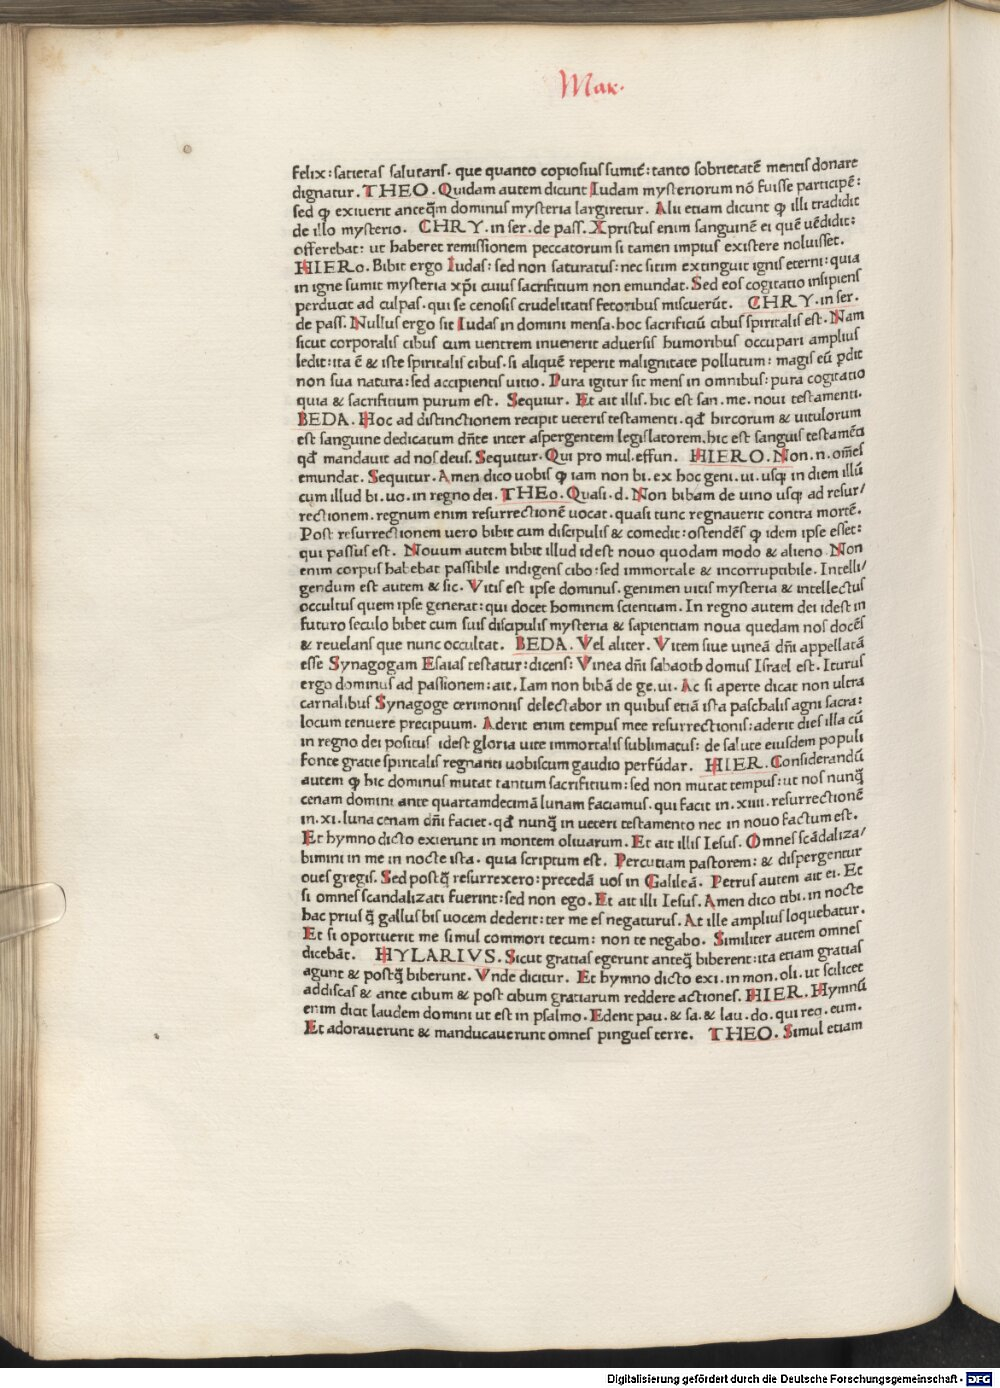 Mar.
felix: satietas salutaris. que quanto copiosius sumit̄: tanto sobrietatē mentis donare
dignatur. THEO. Quidam autem dicunt Iudam mysteriorum nō fuisse participē:
sed ꝙ exiuerit anteq̄m dominus mysteria largiretur. Alii etiam dicunt ꝙ illi tradidit
de illo mysterio. CHRY. in ser. de pass. Xpristus enim sanguinē ei quē uēdidit:
offerebat: ut haberet remissionem peccatorum si tamen impius existere noluisset.
HIERo. Bibit ergo Iudas: sed non saturatus: nec sitim extinguit ignis eterni: quia
in igne sumit mysteria xp̄i cuius sacrificium non emundat. Sed eos cogitatio insipiens
perducit ad culpas. qui se cenosis crudelitatis fetoribus miscuerūt. CHRY. in ser.
de pass. Nullus ergo sit Iudas in domini mensa. hoc sacrificiū cibus spiritalis est. Nam
sicut corporalis cibus cum uentrem inuenerit aduersis humoribus occupari amplius
ledit: ita ē & iste spiritalis cibus. si aliquē reperit malignitate pollutum: magis eū ꝑdit
non sua natura: sed accipientis uitio. Pura igitur sit mens in omnibus: pura cogitatio
quia & sacrifitium purum est. Sequiur. Et ait illis. hic est san. me. noui testamenti.
BEDA. Hoc ad distinctionem recipit ueteris testamenti. qđ hircorum & uitulorum
est sanguine dedicatum dn̄te inter aspergentem legislatorem. hic est sanguis testamēti
qđ mandauit ad nos deus. Sequitur. Qui pro mul. effun. HIERO. Non. n. om̄es
emundat. Sequitur. Amen dico uobis ꝙ iam non bi. ex hoc geni. ui. usqꝫ in diem illū
cum illud bi. uo. in regno dei. THEo. Quasi. d. Non bibam de uino usqꝫ ad resur/
rectionem. regnum enim resurrectionē uocat. quasi tunc regnauerit contra mortē.
Post resurrectionem uero bibit cum discipulis & comedit: ostendēs ꝙ idem ipse esset:
qui passus est. Nouum autem bibit illud idest nouo quodam modo & alieno. Non
enim corpus habebat passibile indigens cibo: sed immortale & incorruptibile. Intelli/
gendum est autem & sic. Vitis est ipse dominus. genimen uitis mysteria & intellectus
occultus quem ipse generat: qui docet hominem scientiam. In regno autem dei idest in
futuro seculo bibet cum suis discipulis mysteria & sapientiam noua quedam nos docēs
& reuelans que nunc occultat. BEDA. Vel aliter. Vitem siue uineā dn̄i appellatā
esse Synagogam Esaias testatur: dicens: Vinea dn̄i sabaoth domus Israel est. Iturus
ergo dominus ad passionem: ait. Iam non bibā de ge. ui. Ac si aperte dicat non ultra
carnalibus Synagoge cerimoniis delectabor in quibus etiā ista paschalis agni sacra:
locum tenuere precipuum. Aderit enim tempus mee resurrectionis: aderit dies illa cū
in regno dei positus idest gloria uite immortalis sublimatus: de salute eiusdem populi
fonte gratie spiritalis regnanti uobiscum gaudio perfūdar. HIER. Considerandū
autem ꝙ hic dominus mutat tantum sacrifitium: sed non mutat tempus: ut nos nunq̄
cenam domini ante quartamdecimā lunam faciamus. qui facit in. xiiii. resurrectionē
in. xi. luna cenam dn̄i faciet. qđ nunq̄ in ueteri testamento nec in nouo factum est.
Et hymno dicto exierunt in montem oliuarum. Et ait illis Iesus. Omnes scādaliza/
bimini in me in nocte ista. quia scriptum est. Percutiam pastorem: & dispergentur
oues gregis. Sed postq̄ resurrexero: precedā uos in Galileā. Petrus autem ait ei. Et
si omnes scandalizati fuerint: sed non ego. Et ait illi Iesus. Amen dico tibi. in nocte
hac prius q̄ gallus bis uocem dederit: ter me es negaturus. At ille amplius loquebatur.
Et si oportuerit me simul commori tecum: non te negabo. Similiter autem omnes
dicebāt. HYLARIVS. Sicut gratias egerunt anteq̄ biberent: ita etiam gratias
agunt & postq̄ biberunt. Vnde dicitur. Et hymno dicto exi. in mon. oli. ut scilicet
addiscas & ante cibum & post cibum gratiarum reddere actiones. HIER. Hymnū
enim dicit laudem domini ut est in psalmo. Edent pau. & sa. & lau. do. qui req. eum.
Et adorauerunt & manducauerunt omnes pingues terre. THEO. Simul etiam
Digitalisierung gefördert durch die Deutsche Forschungsgemeinschaft - DFG